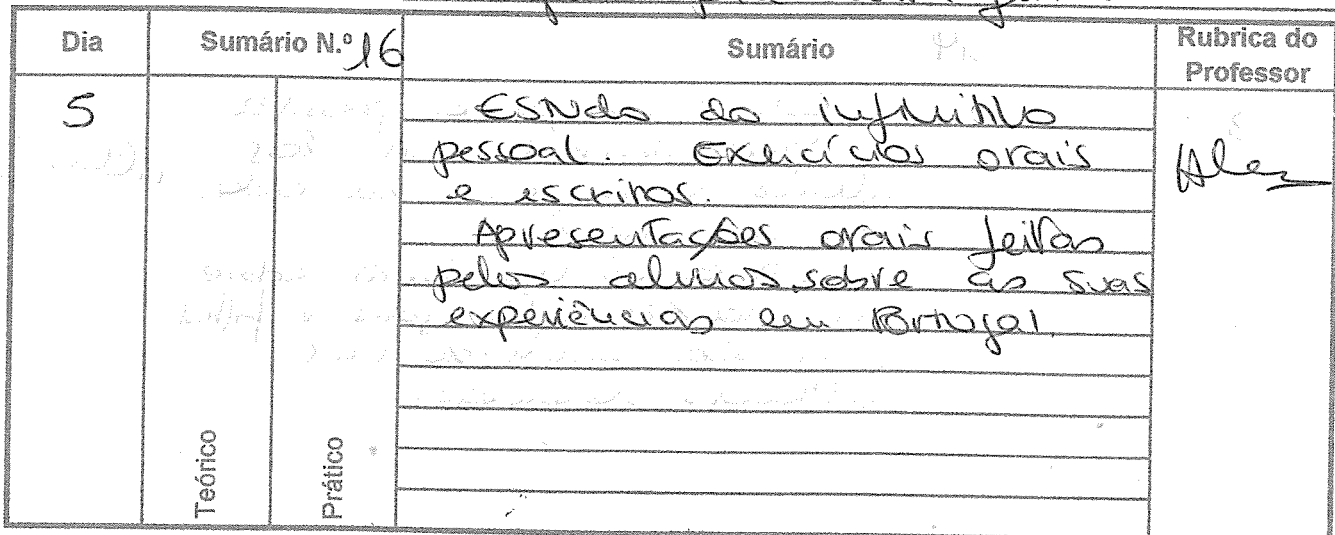 Dia Sumário N.º 16 Sumário Rubrica do Professor
5
Estudo do infinitivo
pessoal. Exercícios orais
e escritos.
Apresentações orais feitas
pelos alunos sobre as suas
experiências em Portugal.
Teórico
Prático